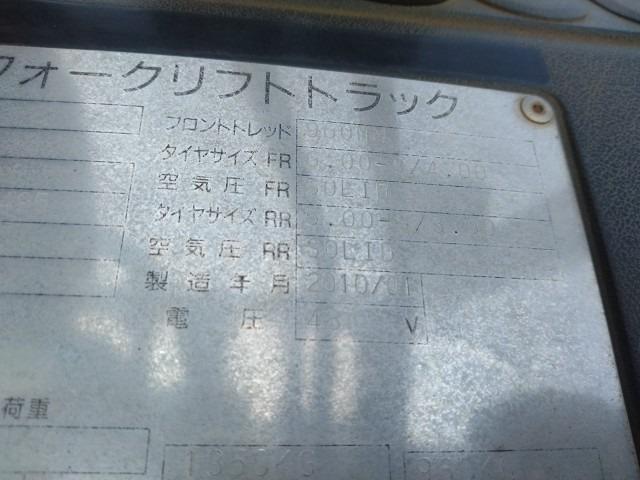 フォークリフトトラック
フロントトレッド 960MM
タイヤサイズ FR 6.00-9/4.00
空気圧 FR SOLID
タイヤサイズ RR
空気圧 RR SOLID
製造年月 2010/01
電圧 V
荷重
1350KG